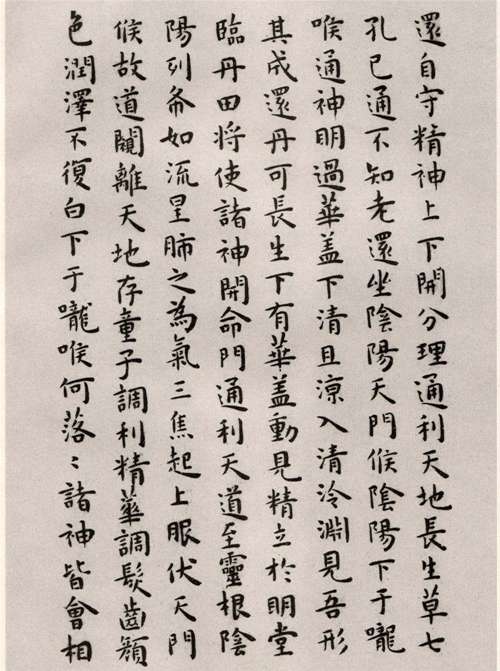 還自守精神上下開分理通利天地長生草七
孔已通不知老還坐陰陽天門候陰陽下于嚨
喉通神明過華盖下清且涼入清泠淵見吾形
其成還丹可長生下有華盖動見精立於明堂
臨丹田将使諸神開命門通利天道至靈根陰
陽列布如流星肺之為氣三焦起上眼伏天門
候故道闚離天地存童子調利精華調髮齒顏
色潤澤不復白下于嚨喉何落〻諸神皆會相